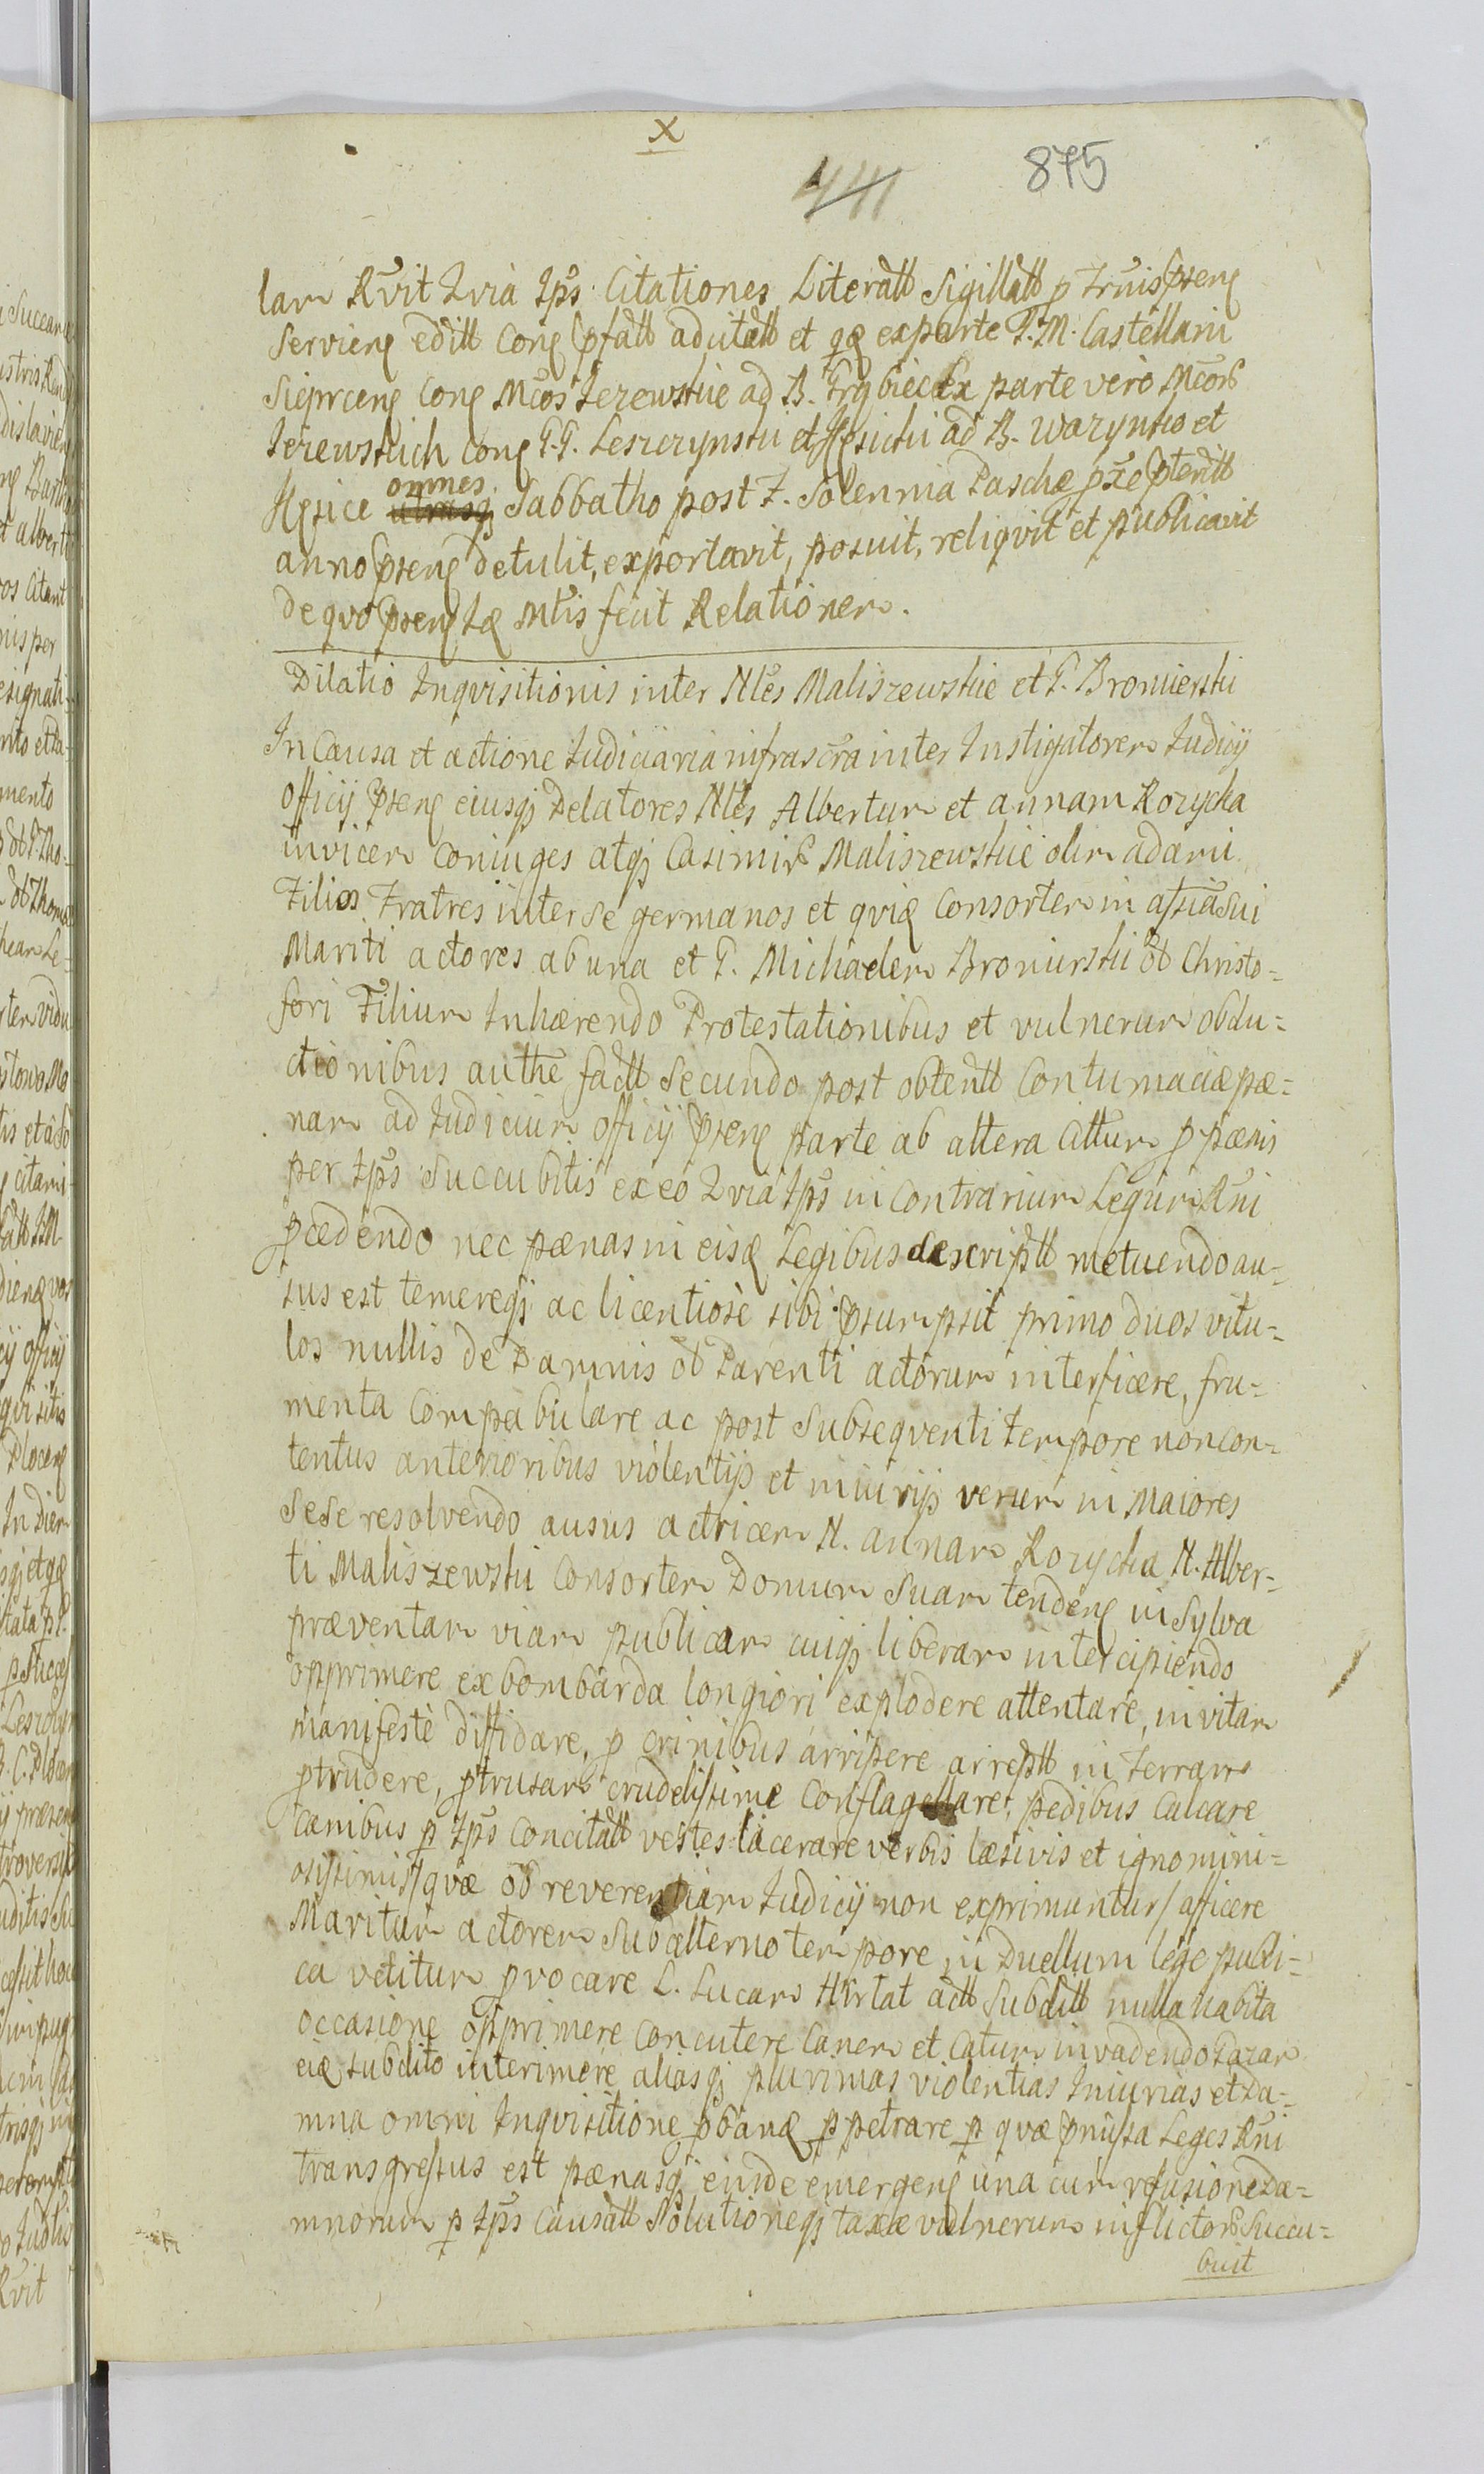 X
441 875
lam Rvit Qvia Ips Citationes Literatt Sigillatt p Truis Psens
Serviens editt cons pfatt aditatt et qq ex parte G. M. Castellani
Sieprcens cons Mcos Jezewskie ad B. Grąbiec Ex parte vero Mcor
Jezewskich cons G.G. Leszczynski et Kęsicki ad B. Warynko et
omnes
Kęsice utrasq Sabbatho post F. Solennia Paschæ pxe pteritt
anno psens detulit, exportavit, posuit, reliqvit et publicavit
de qvo psens Iæ Mtis fecit Relationem.
Dilatio Inqvisitionis inter Nles Maliszewskie et G. Bromierski
In Causa et actione Judiciaria infrascra inter Instigatorem Judicij
officij psens eiusq Delatores Nles Albertum et annam Rozycka
invicem coniuges atq Casimir Maliszewskie olim adami
Filios Fratres inter se germanos et qviq Consortem in assia Sui
Mariti actores ab una et G. Michaelem Bromierski ol Christo=
fori Filium Inhærendo Protestationibus et vulnerum obdu=
ctionibus authe factt Secundo post obtentt Contumaciæ pæ=
nam ad Judicium officij psens parte ab altera Cittum p pænis
per Ips Succubitis ex eo Qvia Ips in Contrarium Legum Rni
pcedendo nec pænas in eisq Legibus descriptt metuendo au=
sus est temereq ac licentiosè sibi psumpsit primo duos vitu=
los nullis de Damnis ol Parenti actorum interficere, fru=
menta Compabulare ac post Subseqventi tempore non con=
tentus anterioribus violentijs et iniurijs verum in Maiores
Sese resolvendo ausus actricem N. annam Rozycka N. Alber=
ti Maliszewski Consortem Domum Suam tendens in Sylva
præventam viam publicam cuiq liberam intercipiendo
opprimere ex bombarda longiori explodere attentare, in vitam
manifestè diffidare, p crinibus arripere arreptt in terram
ptrudere, ptrusam crudelissime Conflagellare, pedibus Calcare
canibus p Ips Concitatt vestes lacerare verbis læsivis et ignomini=
osissimis/qvæ ob reverentiam Judicij non exprimuntur/ afficere
Maritum actorem Subalterno tempore in Duellum lege publi=
ca vetitum pvocare L. Lucam Kirtat actt Subditt nulla habita
occasione opprimere Concutere Canem et Catum invadendo Pazar
eiq subdito interimere aliasq plurimas violentias Iniurias et Da=
mna omni Inqvisitione pbanq ppetrare p qvæ pmissa Leges Rni
transgressus est pænasq eiinde emergens una cum refusione Da=
mnorum p Ips Causatt Solutioneq taxæ vulnerum inflictor Succu=
buit